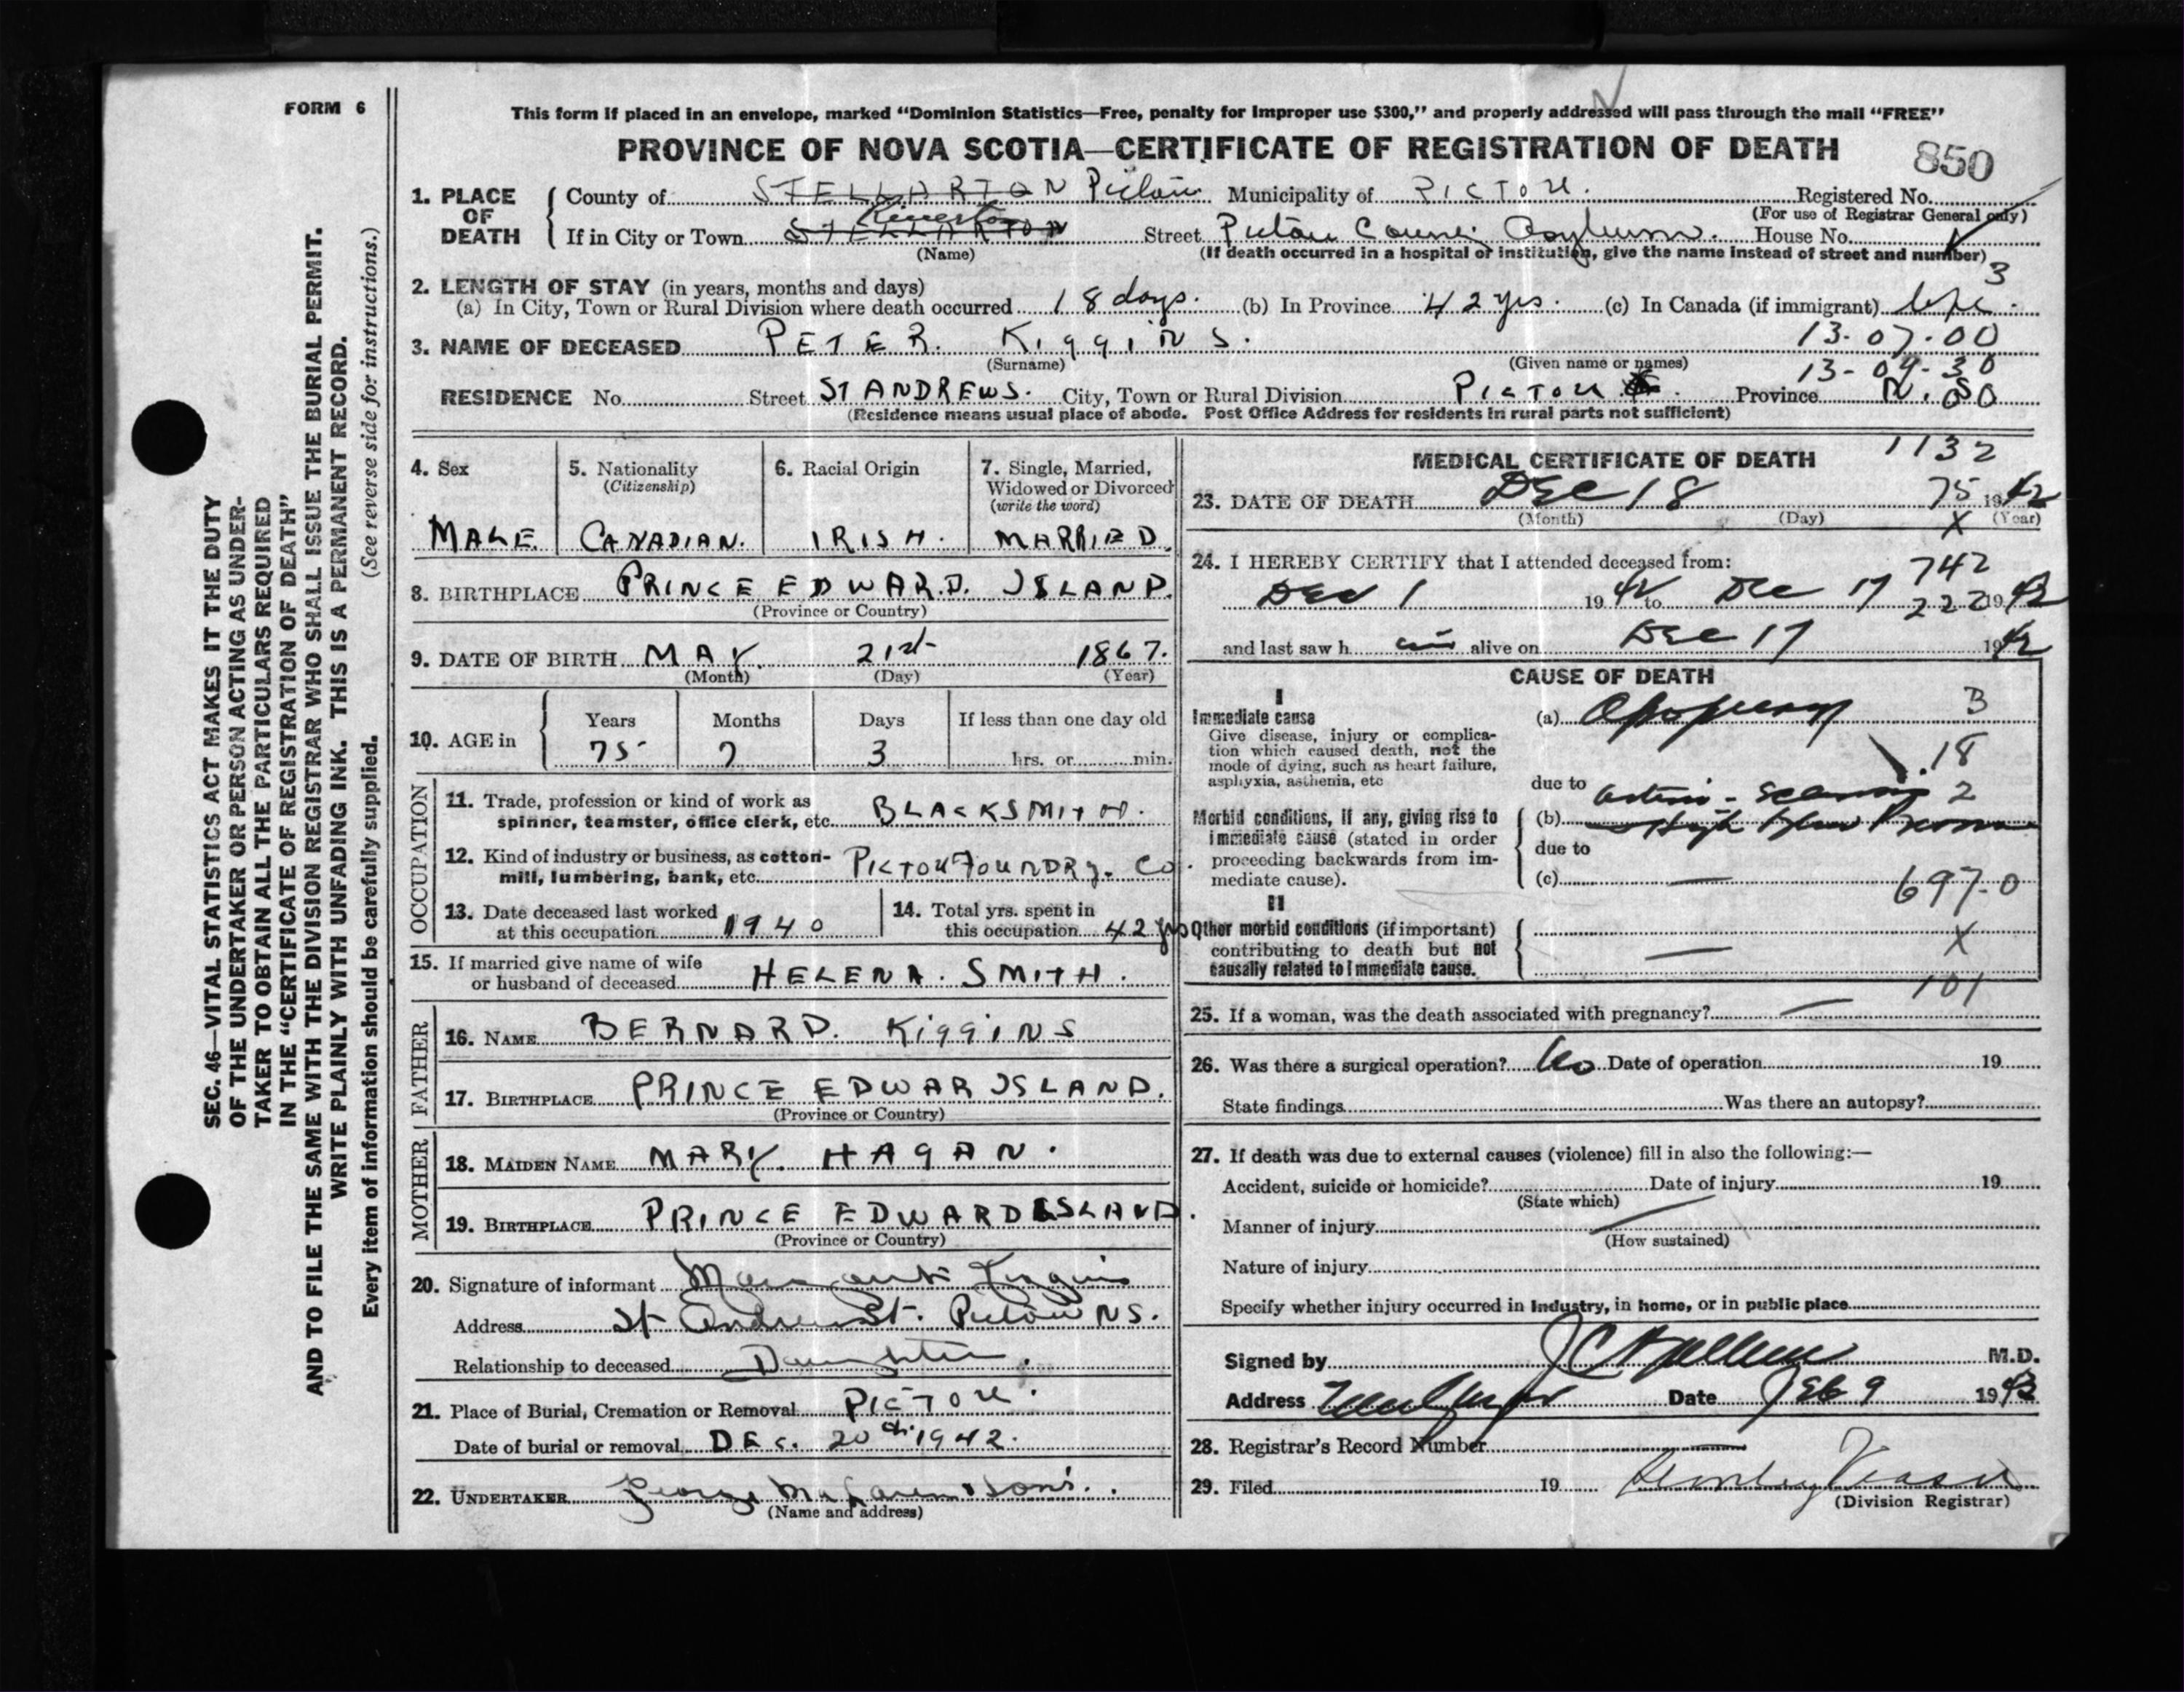 FORM 6
SEC. 46—VITAL STATISTICS ACT MAKES IT THE DUTY
OF THE UNDERTAKER OR PERSON ACTING AS UNDER-
TAKER TO OBTAIN ALL THE PARTICULARS REQUIRED
IN THE "CERTIFICATE OF REGISTRATION OF DEATH"
AND TO FILE THE SAME WITH THE DIVISION REGISTRAR WHO SHALL ISSUE THE BURIAL PERMIT.
WRITE PLAINLY WITH UNFADING INK. THIS IS A PERMANENT RECORD.
Every item of information should be carefully supplied. (See reverse side for instructions.)
This form if placed in an envelope, marked "Dominion Statistics—Free, penalty for improper use $300," and properly addressed will pass through the mail "FREE"
PROVINCE OF NOVA SCOTIA—CERTIFICATE OF REGISTRATION OF DEATH 850
1. PLACE OF DEATH
County of STELLARTON Pictou Municipality of PICTOU. Registered No.
(For use of Registrar General only)
If in City or Town STELLARTON Street Pictou County Asylum. House No.
(Name) (If death occurred in a hospital or institution, give the name instead of street and number)
3
2. LENGTH OF STAY (in years, months and days)
(a) In City, Town or Rural Division where death occurred 18 days. (b) In Province 42 yrs. (c) In Canada (if immigrant) life.
13-07-00
3. NAME OF DECEASED PETER. KIGGINS.
(Surname) (Given name or names)
13-09-30
RESIDENCE No. Street ST ANDREWS. City, Town or Rural Division PICTOU. Province N.S.
(Residence means usual place of abode. Post Office Address for residents in rural parts not sufficient)
4. Sex
MALE.
5. Nationality
(Citizenship)
CANADIAN.
6. Racial Origin
IRISH.
7. Single, Married,
Widowed or Divorced
(write the word)
MARRIED.
8. BIRTHPLACE PRINCE EDWARD. ISLAND.
(Province or Country)
9. DATE OF BIRTH MAY. 21st 1867.
(Month) (Day) (Year)
10. AGE in
Years Months Days If less than one day old
75 7 3 hrs. or min.
OCCUPATION
11. Trade, profession or kind of work as
spinner, teamster, office clerk, etc. BLACKSMITH.
12. Kind of industry or business, as cotton-
mill, lumbering, bank, etc. PICTOU FOUNDRY. CO.
13. Date deceased last worked
at this occupation 1940
14. Total yrs. spent in
this occupation 42 yrs
15. If married give name of wife
or husband of deceased HELENA. SMITH.
FATHER
16. NAME BERNARD. KIGGINS
17. BIRTHPLACE PRINCE EDWAR ISLAND.
(Province or Country)
MOTHER
18. MAIDEN NAME MARY. HAGAN.
19. BIRTHPLACE PRINCE EDWARD ISLAND.
(Province or Country)
20. Signature of informant
Address St Andrew St. Pictou NS.
Relationship to deceased Daughter.
21. Place of Burial, Cremation or Removal PICTOU.
Date of burial or removal DEC. 20th 1942.
22. UNDERTAKER George McLaren & Sons.
(Name and address)
1132
MEDICAL CERTIFICATE OF DEATH
23. DATE OF DEATH DEC 18 75 1942
(Month) (Day) X (Year)
24. I HEREBY CERTIFY that I attended deceased from:
742
Dec 1 1942 to Dec 17 222 1942
and last saw h im alive on Dec 17 1942
CAUSE OF DEATH
I
Immediate cause
Give disease, injury or complica-
tion which caused death, not the
mode of dying, such as heart failure,
asphyxia, asthenia, etc
(a) Apoplexy 3
18
due to
Arterio-Sclerosis 2
Morbid conditions, if any, giving rise to
immediate cause (stated in order
proceeding backwards from im-
mediate cause).
(b) High Blood Pressure
due to
(c) — 697-0
II
Other morbid conditions (if important)
contributing to death but not
causally related to immediate cause.
— X
101
25. If a woman, was the death associated with pregnancy? —
26. Was there a surgical operation? No Date of operation 19
State findings Was there an autopsy?
27. If death was due to external causes (violence) fill in also the following:—
Accident, suicide or homicide? Date of injury 19
(State which)
Manner of injury
(How sustained)
Nature of injury
Specify whether injury occurred in industry, in home, or in public place
Signed by M.D.
Address Date Feb 9 1943
28. Registrar's Record Number
29. Filed 19
(Division Registrar)